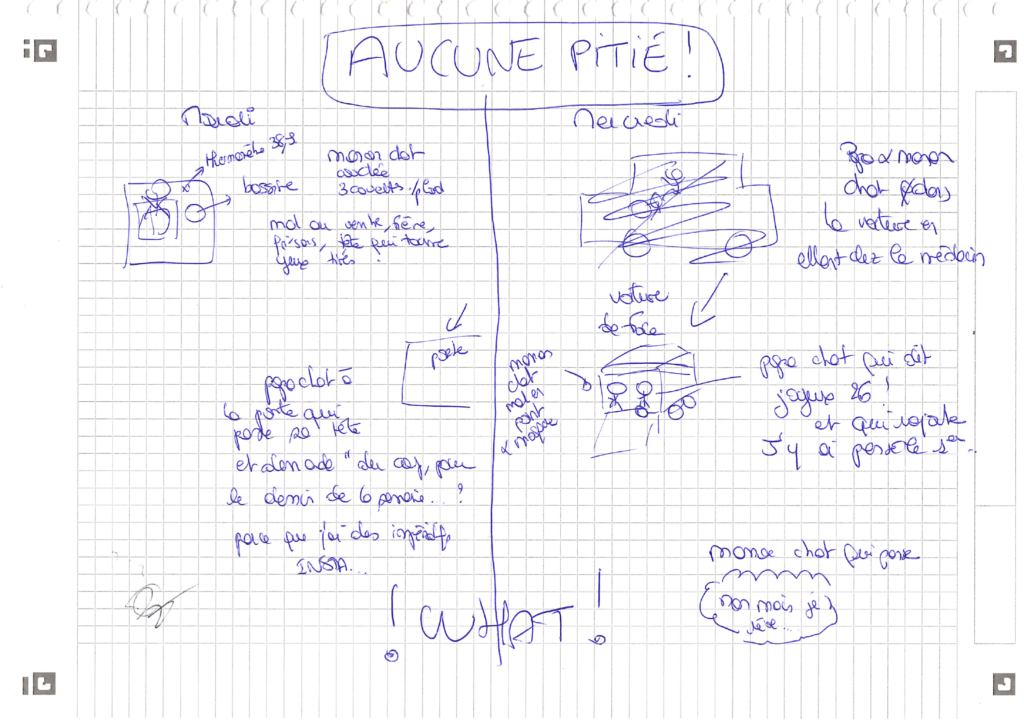 AUCUNE PITIÉ !
Mardi
thermomètre 38,9
bassine
maman chat
couchée
3 couverts
mal au ventre, fièvre,
tête qui tourne
yeux tirés
porte
papa chat à
la porte qui
passe sa tête
et demande "du coup, pour
le dessin de la semaine...?
parce que j'ai des impératifs,
INSTA...
Mercredi
Papa & maman
chat dans
la voiture en
allant chez le médecin
voiture
de face
maman
chat
mal en
point
& masquée
papa chat qui dit
joyeux 26 !
et qui rajoute
J'y ai pensé le 1er..
maman chat qui pense
non mais je
rêve...
! WHAT !